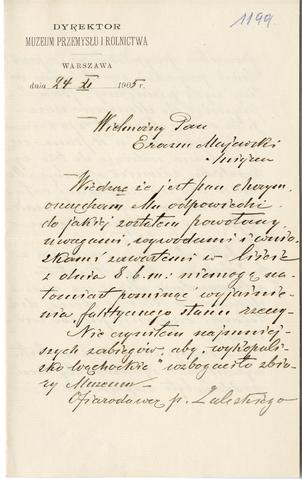 1199
DYREKTOR
MUZEUM PRZEMYSŁU I ROLNICTWA
WARSZAWA
dnia 24 XI 1905 r.
Wielmożny Pan
Erazm Majewski
w miejscu
Wiedząc że jest pan chorym,
oszczędzam Mu odpowiedzi
do jakiej zostałem powołany
uwagami, wywodami i wnio-
skami zawartemi w liście
z dnia 8. b. m.: niemogę na-
tomiast pominąć wyjaśnie-
nia faktycznego stanu rzeczy.
Nie czyniłem najmniej-
szych zabiegów, aby "wykopali-
sko wąchockie" wzbogaciło zbio-
ry Muzeum.
Ofiarodawca p. Zaleskiego